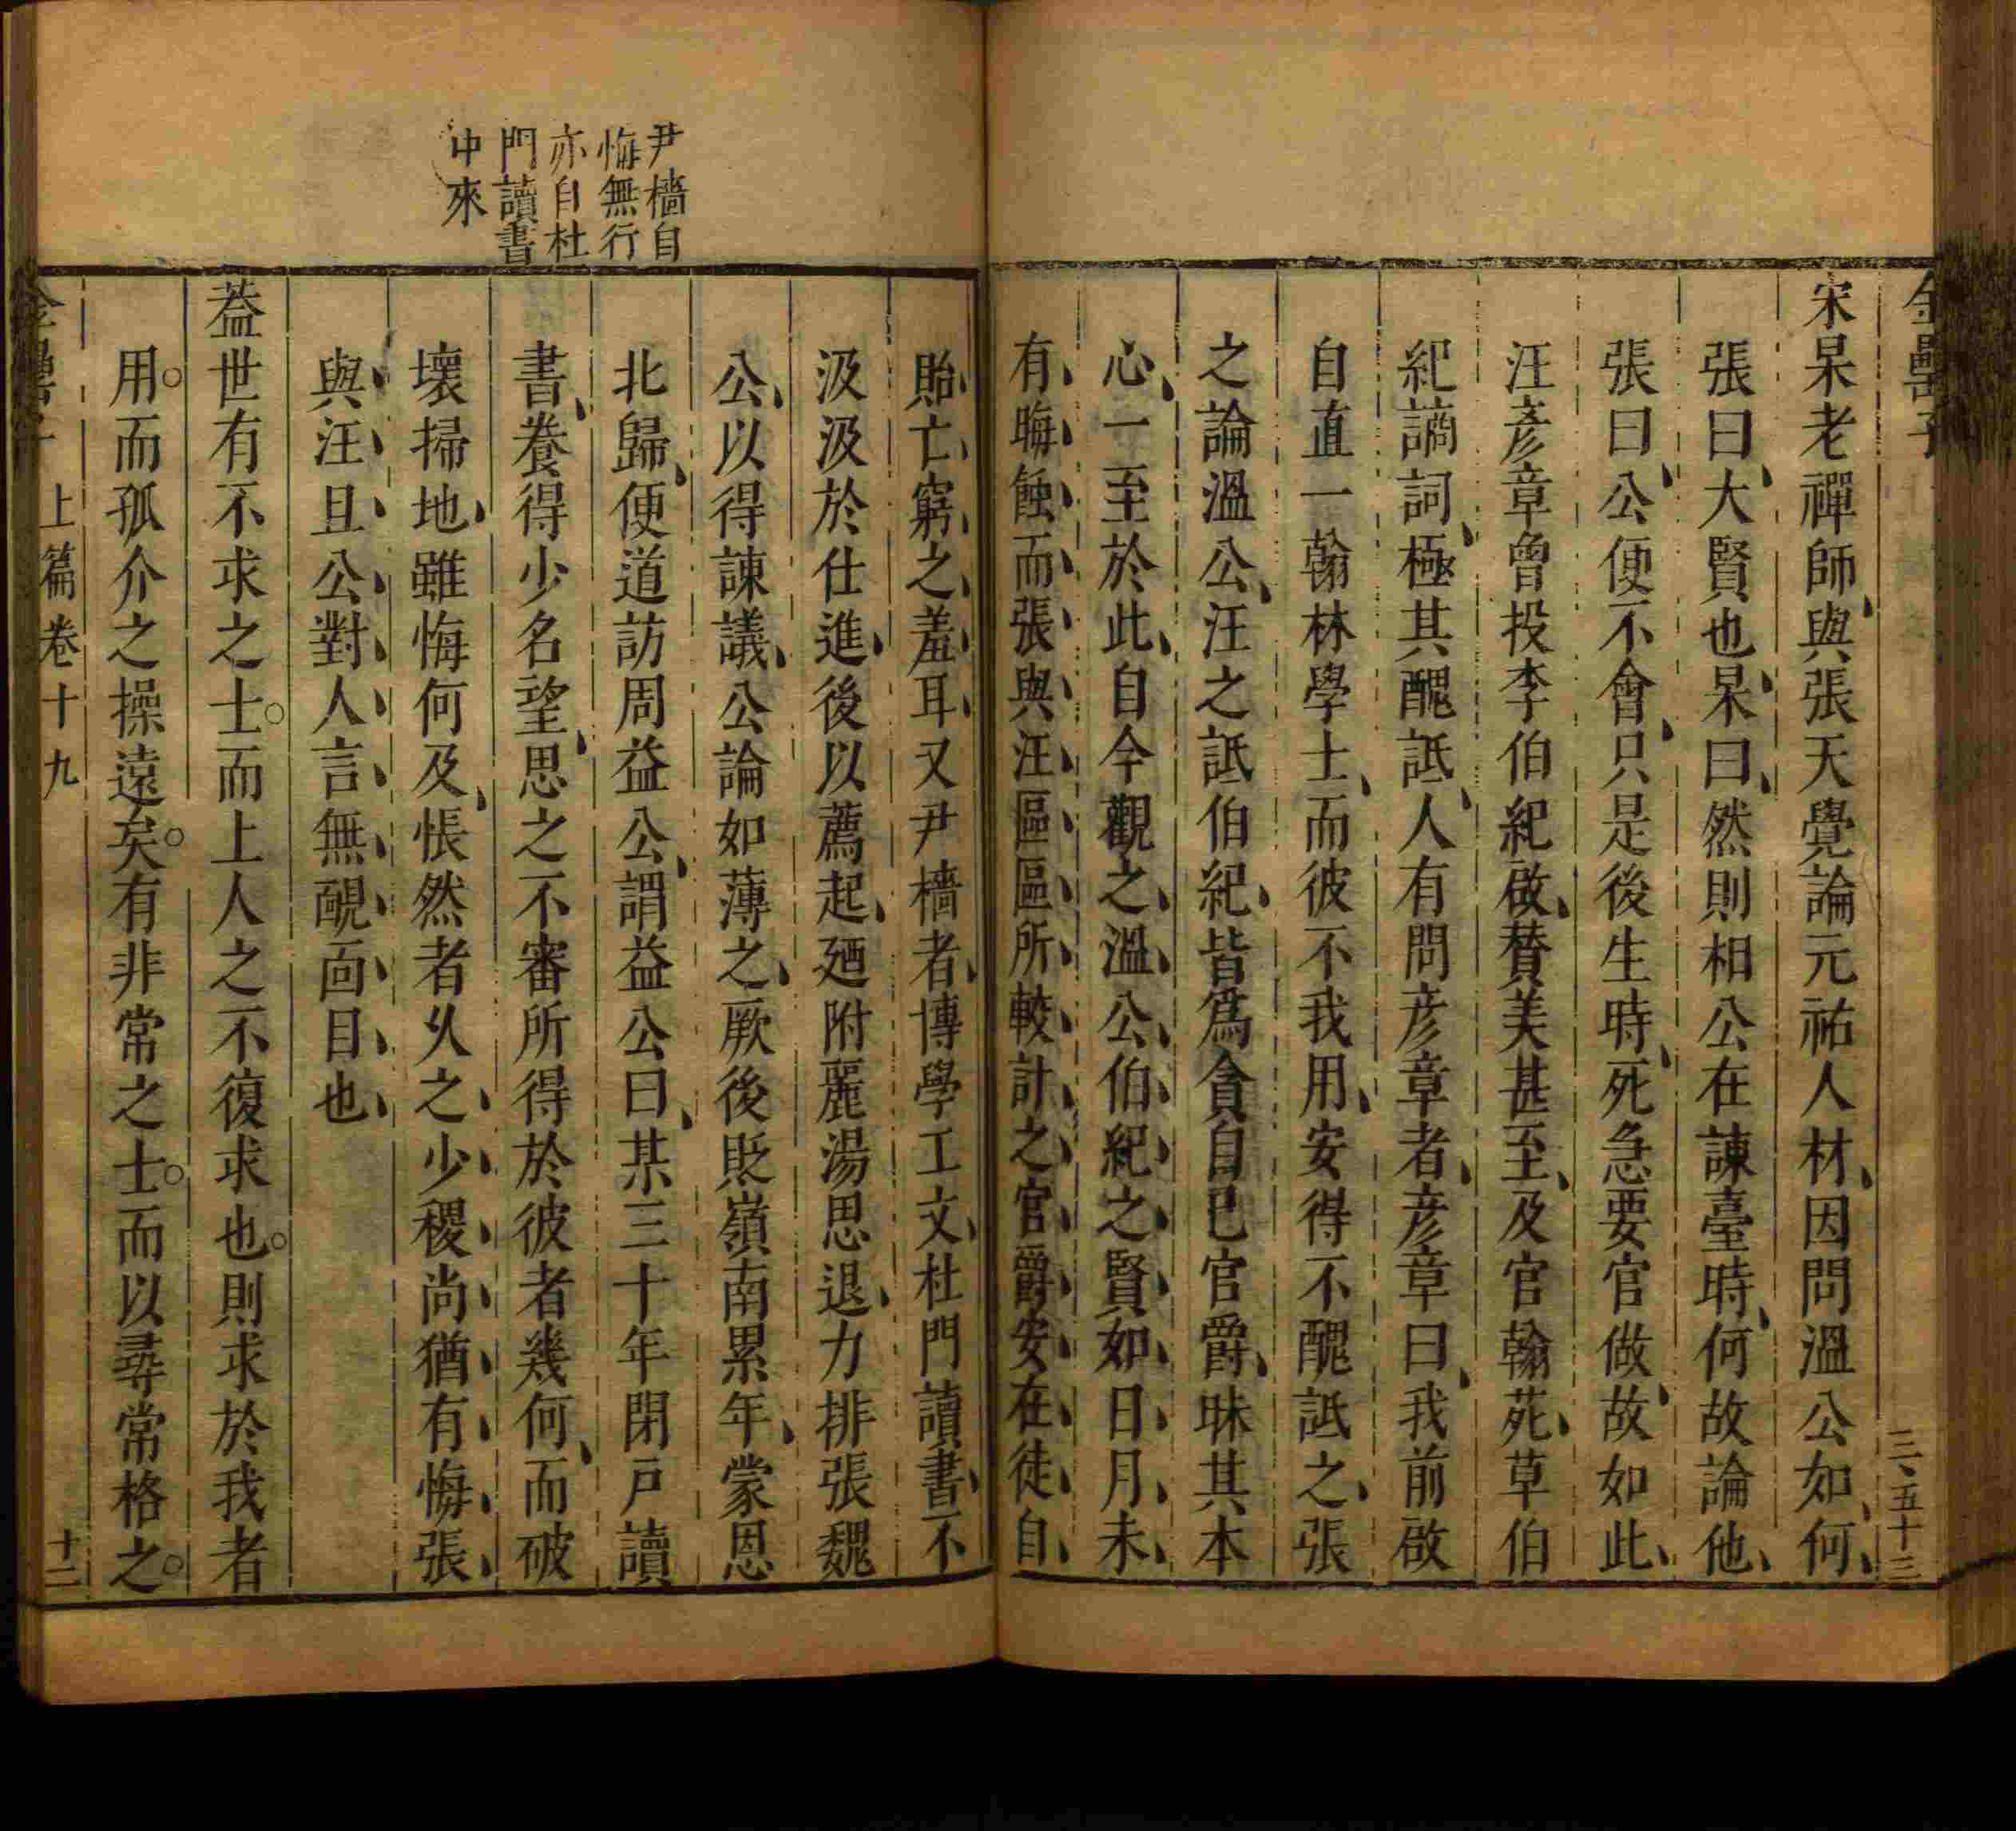 金罍子
三、五十三
宋杲老禪師與張天覺論元祐人材因問溫公如何
張曰大賢也杲曰然則相公在諫臺時何故論他
張曰公便不會只是後生時死急要官做故如此
汪彥章曾投李伯紀啟賛美甚至及官翰苑草伯
紀謫詞極其醜詆人有問彥章者彥章曰我前啟
自直一翰林學士而彼不我用安得不醜詆之張
之論溫公汪之詆伯紀皆爲貪自已官爵昧其本
心一至於此自今觀之溫公伯紀之賢如日月未
有晦蝕而張與汪區區所較計之官爵安在徒自
貽亡窮之羞耳又尹檣者博學工文杜門讀書不
汲汲於仕進後以薦起廼附麗湯思退力排張魏
公以得諫議公論如薄之厥後貶嶺南累年蒙恩
北歸便道訪周益公謂益公曰某三十年閉戸讀
書養得少名望思之不審所得於彼者幾何而破
壞掃地雖悔何及悵然者乆之少稷尚猶有悔張
與汪且公對人言無靦靣目也
葢世有不求之士而上人之不復求也則求於我者
用而孤介之操遠矣有非常之士而以尋常格之
尹檣自
悔無行
亦自杜
門讀書
中來
金罍子
上篇卷十九
十二